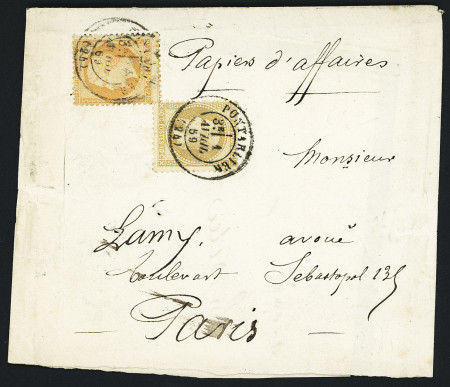 Papiers d'affaires
PONTARLIER
4
AVRIL
69
(24)
Monsieur
Lamy, avoué
boulevart Sébastopol 135
Paris